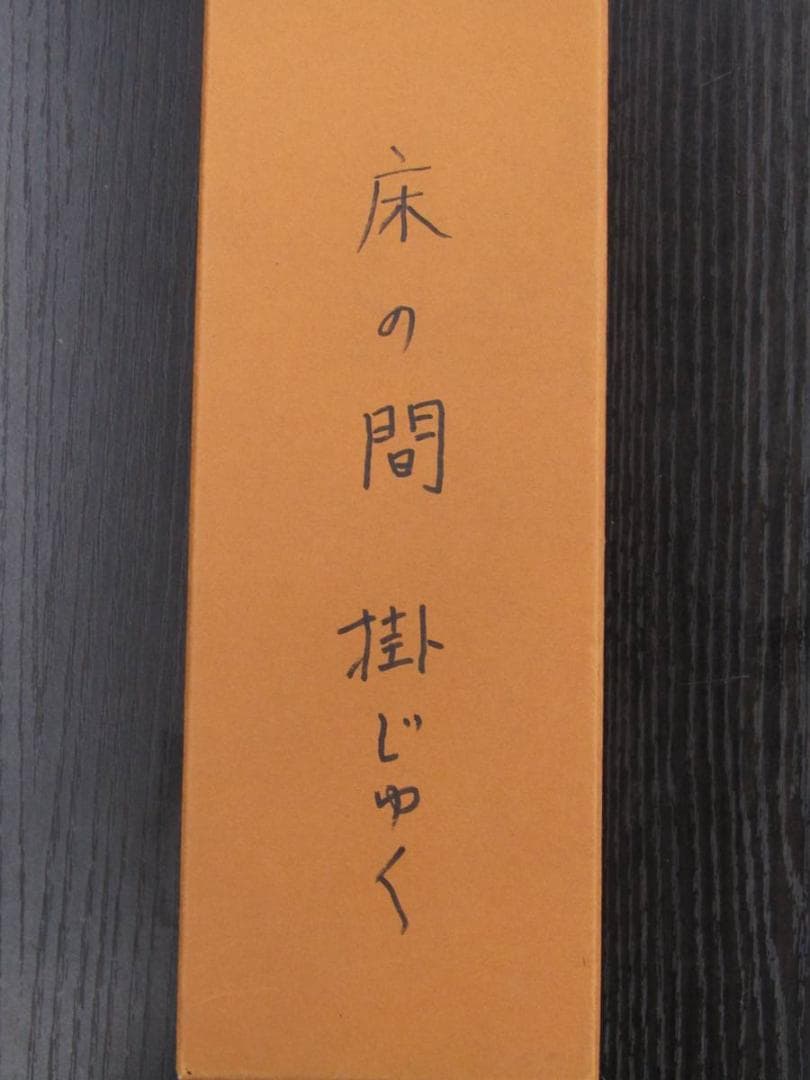 床の間 掛じゅく